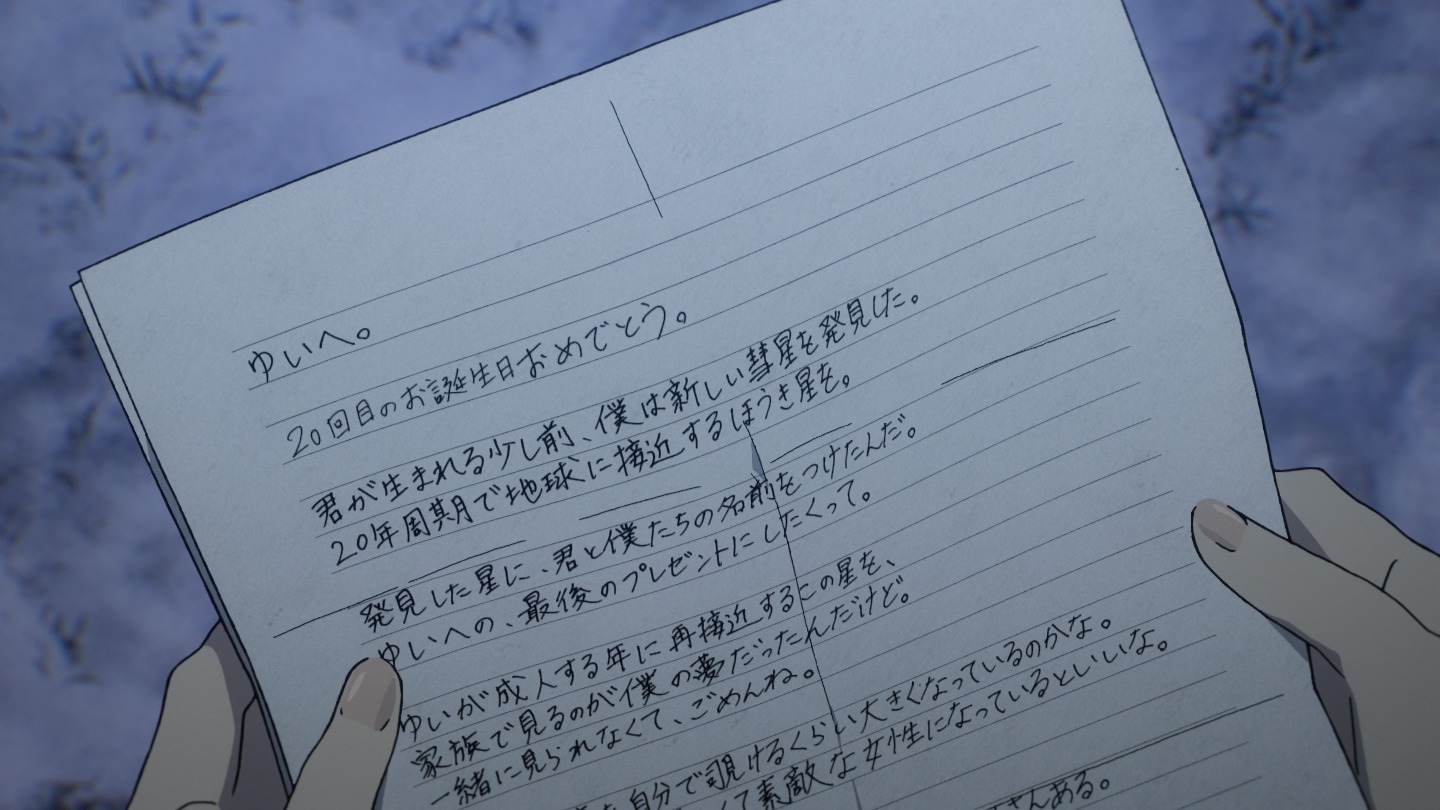 ゆいへ。
20回目のお誕生日おめでとう。
君が生まれる少し前、僕は新しい彗星を発見した。
20年周期で地球に接近するほうき星を。
発見した星に、君と僕たちの名前をつけたんだ。
ゆいへの、最後のプレゼントにしたくって。
ゆいが成人する年に再接近するこの星を、
家族で見るのが僕の夢だったんだけど。
一緒に見られなくて、ごめんね。
自分で覗けるくらい大きくなっているのかな。
て素敵な女性になっているといいな。
さんある。